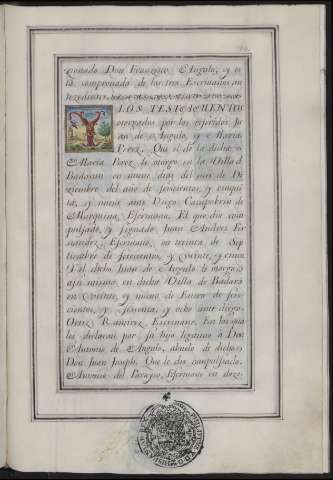 zionado Don Francisco Angulo, y es
tá comprovada de los tres Escrivanos an
tezedentes.
Y LOS TESTAMENTOS
otorgados por los referidos Ju
an de Angulo, y Maria
Perez, Que el de la dicha
Maria Perez le otorgo en la Villa d
Badaran en nueve dias del mes de Di
ziembre del año de seiscientos, y cinquen
ta, y nueve ante Diego Campobrin de
Marquina, Escrivano. El que dio com
pulsado, y signado Juan Andres Fer
nandez, Escrivano, en treinta de Sep
tiembre de setecientos, y veinte, y cinco
Y el dicho Juan de Angulo le otorgo a
si mismo en dicha Villa de Badarà
en veinte, y nueve de Enero de seis
cientos, y sesenta, y ocho ante Diego
Ortiz Ramirez Escrivano. En los qua
les declaran por su hijo legitimo à Don
Antonio de Angulo, abuelo del dicho
Don Juan Joseph. Que le dio compulsado
Antonio del Pareyso, Escrivano en doze